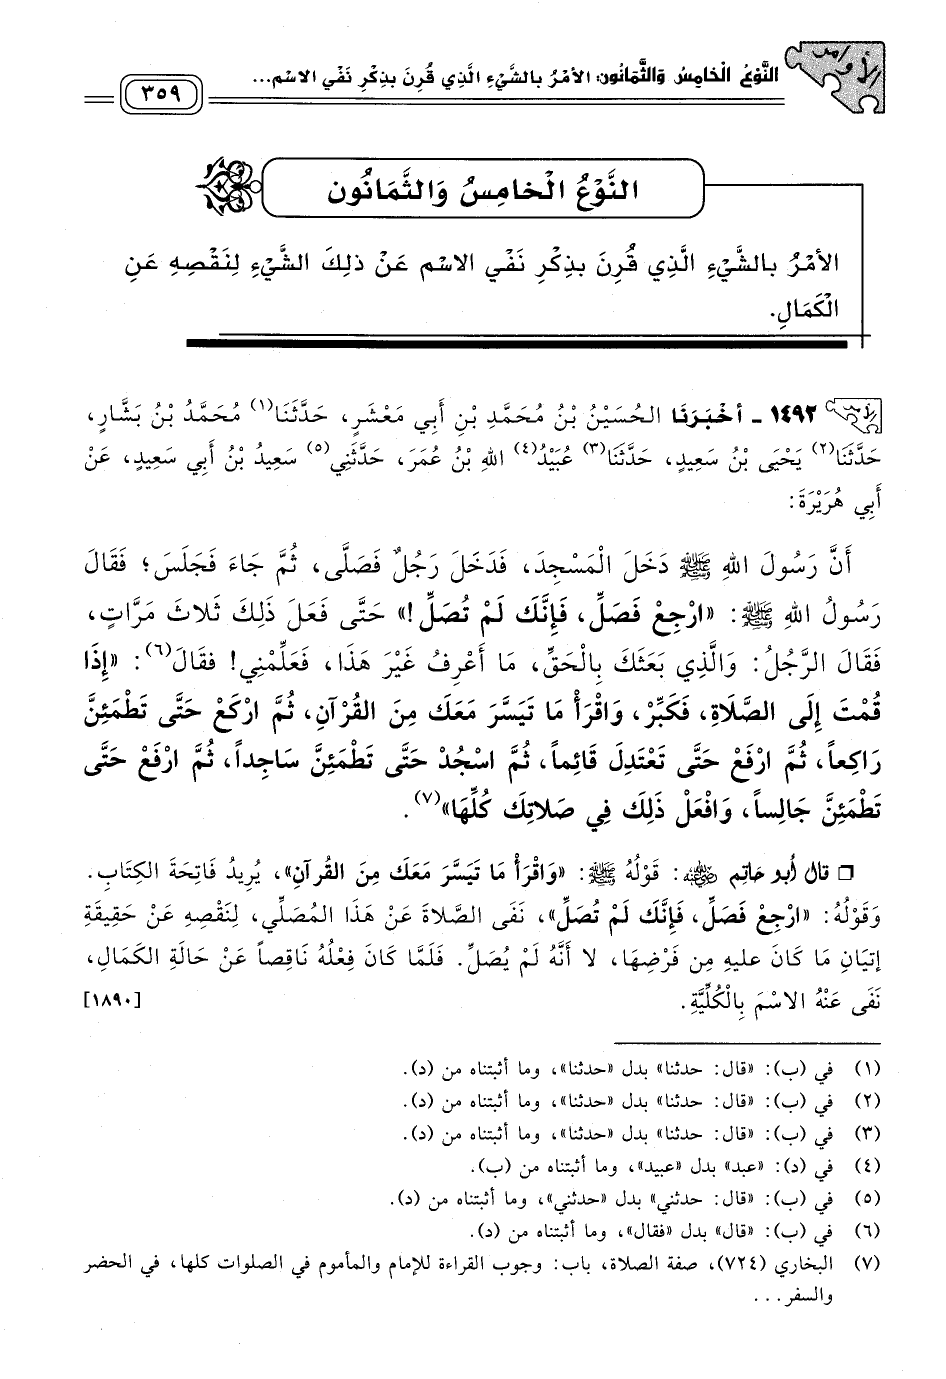 الأوامر
النَّوْعُ الْخَامِسُ وَالثَّمَانُون: الأَمْرُ بِالشَّيْءِ الَّذِي قُرِنَ بِذِكْرِ نَفْيِ الاسْمِ...
٣٥٩
النَّوْعُ الْخَامِسُ وَالثَّمَانُون
الأَمْرُ بِالشَّيْءِ الَّذِي قُرِنَ بِذِكْرِ نَفْيِ الاسْمِ عَنْ ذلِكَ الشَّيْءِ لِنَقْصِهِ عَنِ
الْكَمَالِ.
١٤٩٢ - أَخْبَرَنَا الحُسَيْنُ بْنُ مُحَمَّدِ بْنِ أَبِي مَعْشَرٍ، حَدَّثَنَا(١) مُحَمَّدُ بْنُ بَشَّارٍ،
حَدَّثَنَا(٢) يَحْيَى بْنُ سَعِيدٍ، حَدَّثَنَا(٣) عُبَيْدُ(٤) اللهِ بْنُ عُمَرَ، حَدَّثَنِي(٥) سَعِيدُ بْنُ أَبِي سَعِيدٍ، عَنْ
أَبِي هُرَيْرَةَ:
أَنَّ رَسُولَ اللهِ ﷺ دَخَلَ الْمَسْجِدَ، فَدَخَلَ رَجُلٌ فَصَلَّى، ثُمَّ جَاءَ فَجَلَسَ؛ فَقَالَ
رَسُولُ اللهِ ﷺ: «ارْجِعْ فَصَلِّ، فَإِنَّكَ لَمْ تُصَلِّ!» حَتَّى فَعَلَ ذَلِكَ ثَلاثَ مَرَّاتٍ،
فَقَالَ الرَّجُلُ: وَالَّذِي بَعَثَكَ بِالْحَقِّ، مَا أَعْرِفُ غَيْرَ هَذَا، فَعَلِّمْنِي! فقَالَ(٦): «إِذَا
قُمْتَ إِلَى الصَّلاةِ، فَكَبِّرْ، وَاقْرَأْ مَا تَيَسَّرَ مَعَكَ مِنَ القُرْآنِ، ثُمَّ ارْكَعْ حَتَّى تَطْمَئِنَّ
رَاكِعاً، ثُمَّ ارْفَعْ حَتَّى تَعْتَدِلَ قَائِماً، ثُمَّ اسْجُدْ حَتَّى تَطْمَئِنَّ سَاجِداً، ثُمَّ ارْفَعْ حَتَّى
تَطْمَئِنَّ جَالِساً، وَافْعَلْ ذَلِكَ فِي صَلاتِكَ كُلِّهَا»(٧).
❒ قال أبو حاتم رضي الله عنه: قَوْلُهُ ﷺ: «وَاقْرَأْ مَا تَيَسَّرَ مَعَكَ مِنَ القُرْآنِ»، يُرِيدُ فَاتِحَةَ الكِتَابِ.
وَقَوْلُهُ: «ارْجِعْ فَصَلِّ، فَإِنَّكَ لَمْ تُصَلِّ»، نَفَى الصَّلاةَ عَنْ هَذَا المُصَلِّي، لِنَقْصِهِ عَنْ حَقِيقَةِ
إتيَانِ مَا كَانَ عليهِ مِن فَرْضِهَا، لا أَنَّهُ لَمْ يُصَلِّ. فَلَمَّا كَانَ فِعْلُهُ نَاقِصاً عَنْ حَالَةِ الكَمَالِ،
نَفَى عَنْهُ الاسْمَ بِالْكُلِّيَّةِ. [١٨٩٠]
(١) في (ب): «قال: حدثنا» بدل «حدثنا»، وما أثبتناه من (د).
(٢) في (ب): «قال: حدثنا» بدل «حدثنا»، وما أثبتناه من (د).
(٣) في (ب): «قال: حدثنا» بدل «حدثنا»، وما أثبتناه من (د).
(٤) في (د): «عبد» بدل «عبيد»، وما أثبتناه من (ب).
(٥) في (ب): «قال: حدثني» بدل «حدثني»، وما أثبتناه من (د).
(٦) في (ب): «قال» بدل «فقال»، وما أثبتناه من (د).
(٧) البخاري (٧٢٤)، صفة الصلاة، باب: وجوب القراءة للإمام والمأموم في الصلوات كلها، في الحضر
والسفر...